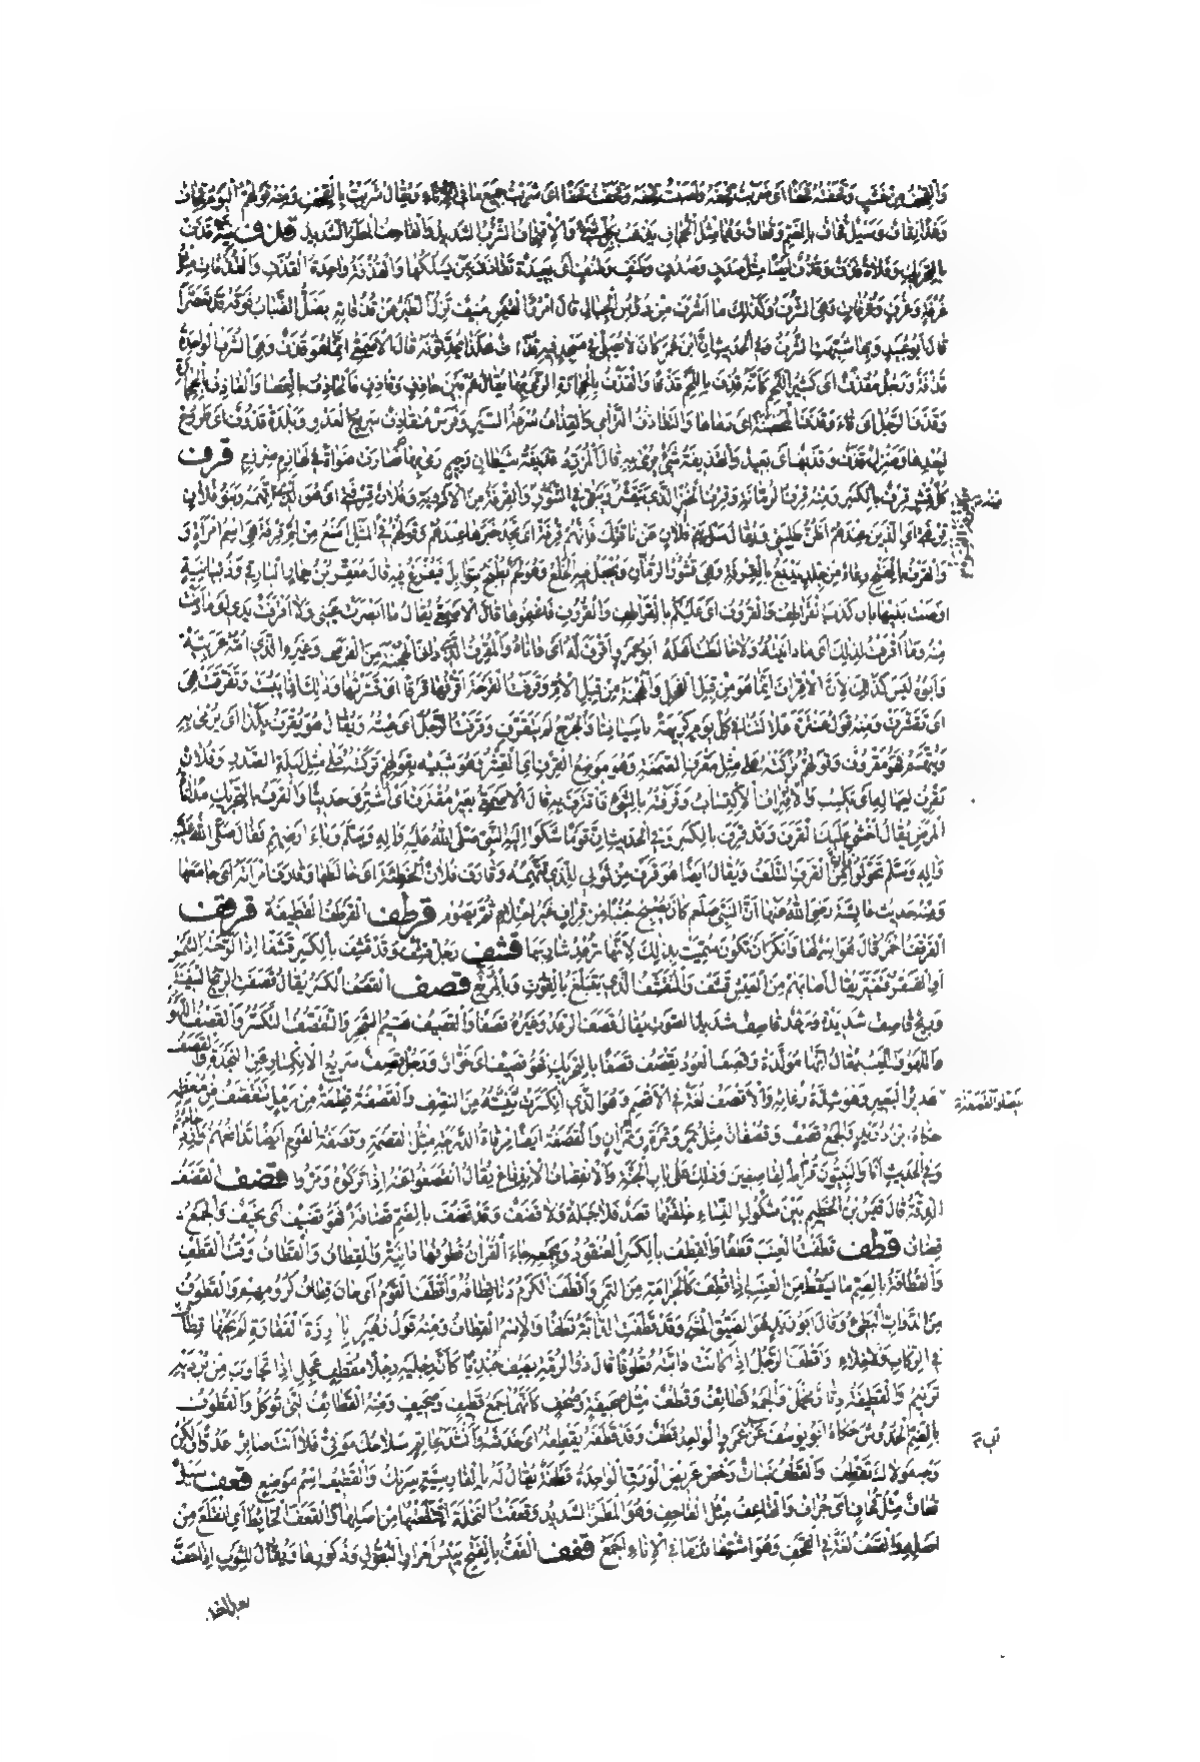 وَالْقِحْفُ مِنْ خَشَبٍ وَقَحَفْتُهُ قَحْفًا أَيْ ضَرَبْتُ قِحْفَهُ وَأَصَبْتُ قِحْفَهُ وَقَحَفْتُ قَحْفًا أَيْ شَرِبْتُ جَمِيعَ مَا فِي الْإِنَاءِ وَيُقَالُ شَرِبْتُ بِالْقِحْفِ وَمِنْهُ قَوْلُهُمْ الْيَوْمَ قِحَافٌ
وَغَدًا نِقَافٌ وَسَيْلٌ قُحَافٌ بِالضَّمِّ وَقُعَافٌ وَهُمَا مِثْلُ الْجُحَافِ يَذْهَبُ بِكُلِّ شَيْءٍ وَالْاِقْتِحَافُ الشُّرْبُ الشَّدِيدُ وَالْقَاحِفُ الْمَطَرُ الشَّدِيدُ قذف
بِالْحِجَارَةِ وَفَلَاةٌ قَذَفٌ وَقُذُفٌ أَيْضًا مِثْلُ صَدَفٍ وَصُدُفٍ وَطَنَفٍ وَطُنُفٍ أَيْ بَعِيدَةٌ تَقَاذَفُ بِمَنْ يَسْلُكُهَا وَالْقُذْفَةُ وَاحِدَةُ الْقُذَفِ وَالْقُذُفَاتِ مِثْلُ
غُرْفَةٍ وَغُرَفٍ وَغُرُفَاتٍ وَهِيَ الشُّرَفُ وَكَذَلِكَ مَا أَشْرَفَ مِنْ رُءُوسِ الْجِبَالِ قَالَ امْرُؤُ الْقَيْسِ مُنِيفٍ تَزِلُّ الطَّيْرُ مِنْ قُذُفَاتِهِ يَظَلُّ الضَّبَابُ فَوْقَهُ قَدْ تَعَصَّرَا
قَالَ أَبُو عُبَيْدٍ وَبِهَا شُبِّهَتِ الشُّرَفُ وَفِي الْحَدِيثِ إِنَّ ابْنَ عُمَرَ كَانَ لَا يُصَلِّي فِي مَسْجِدٍ فِيهِ قِذَافٌ هَكَذَا يُحَدِّثُونَهُ قَالَ الْأَصْمَعِيُّ إِنَّمَا هُوَ قُذَفٌ وَهِيَ الشُّرَفُ الْوَاحِدَةُ
قُذْفَةٌ وَرَجُلٌ مُقَذَّفٌ أَيْ كَثِيرُ اللَّحْمِ كَأَنَّهُ قُذِفَ بِاللَّحْمِ قَذْفًا وَالْقَذْفُ بِالْحِجَارَةِ الرَّمْيُ بِهَا يُقَالُ هُمْ بَيْنَ حَاذِفٍ وَقَاذِفٍ فَالْحَاذِفُ بِالْعَصَا وَالْقَاذِفُ بِالْحِجَارَةِ
وَقَذَفَ الرَّجُلُ أَيْ قَاءَ وَقَذَفَ الْمُحْصَنَةَ أَيْ رَمَاهَا وَالتَّقَاذُفُ التَّرَامِي وَالْقِذَافُ سُرْعَةُ السَّيْرِ وَفَرَسٌ مُتَقَاذِفٌ سَرِيعُ الْعَدْوِ وَبَلْدَةٌ قَذُوفٌ أَيْ طَرُوحٌ
لِبُعْدِهَا وَمَنْزِلٌ قَذَفٌ وَقَذِيفٌ أَيْ بَعِيدٌ وَالْقَذِيفَةُ شَيْءٌ يُرْمَى بِهِ قَالَ الْمُزَرِّدُ قَذِيفَةُ شَيْطَانٍ رَجِيمٍ رَمَى بِهَا فَصَارَتْ ضَوَاةً فِي لَهَازِمِ ضِرْزِمِ قرف
كُلُّ قِشْرٍ قِرْفٌ بِالْكَسْرِ وَمِنْهُ قِرْفُ الرُّمَّانَةِ وَقِرْفُ الْخُبْزِ الَّذِي يَتَقَشَّرُ وَيَبْقَى فِي التَّنُّورِ وَالْقِرْفَةُ مِنَ الْأَدْوِيَةِ وَفُلَانٌ قِرْفَتِي أَيْ هُوَ الَّذِي أَتَّهِمُهُ وَبَنُو فُلَانٍ
قِرْفَتِي أَيِ الَّذِينَ عِنْدَهُمْ أَظُنُّ طَلِبَتِي وَيُقَالُ سَلْ بَنِي فُلَانٍ عَنْ نَاقَتِكَ فَإِنَّهُمْ قِرْفَةٌ أَيْ تَجِدُ خَبَرَهَا عِنْدَهُمْ وَقَوْلُهُمْ فِي الْمَثَلِ أَمْنَعُ مِنْ أُمِّ قِرْفَةَ هِيَ اسْمُ امْرَأَةٍ وَ
وَالْقَرْفُ بِالْفَتْحِ وِعَاءٌ مِنْ جِلْدٍ يُدْبَغُ بِالْقِرْفَةِ وَهِيَ قُشُورُ الرُّمَّانِ وَيُجْعَلُ فِيهِ الْخَلْعُ وَهُوَ لَحْمٌ يُطْبَخُ بِتَوَابِلَ فَيُفَرَّغُ فِيهِ قَالَ مُعَقِّرُ بْنُ حِمَارٍ الْبَارِقِيُّ وَذُبْيَانِيَّةٍ
أَوْصَتْ بَنِيهَا بِأَنْ كَذَبَ الْقَرَاطِفُ وَالْقُرُوفُ أَيْ عَلَيْكُمْ بِالْقَرَاطِفِ وَالْقُرُوفِ فَاغْنَمُوهَا قَالَ الْأَصْمَعِيُّ يُقَالُ مَا أَبْصَرَتْ عَيْنِي وَلَا أَقْرَفَتْ يَدِي أَيْ مَا دَنَتْ
مِنْهُ وَمَا أَقْرَفْتُ لِذَلِكَ أَيْ مَا دَانَيْتُهُ وَلَا خَالَطْتُ أَهْلَهُ أَبُو عَمْرٍو أَقْرَفَ لَهُ أَيْ دَانَاهُ وَالْمُقْرِفُ الَّذِي دَانَى الْهُجْنَةَ مِنَ الْفَرَسِ وَغَيْرِهِ الَّذِي أُمُّهُ عَرَبِيَّةٌ
وَأَبُوهُ لَيْسَ كَذَلِكَ لِأَنَّ الْإِقْرَافَ إِنَّمَا هُوَ مِنْ قِبَلِ الْفَحْلِ وَالْهُجْنَةَ مِنْ قِبَلِ الْأُمِّ وَقَرَفْتُ الْقَرْحَةَ أَقْرِفُهَا قَرْفًا أَيْ قَشَرْتُهَا وَذَلِكَ إِذَا يَبِسَتْ وَتَقَرَّفَتْ هِيَ
أَيْ تَقَشَّرَتْ وَمِنْهُ قَوْلُ عَنْتَرَةَ عُلَالَتُنَا فِي كُلِّ يَوْمِ كَرِيهَةٍ بِأَسْيَافِنَا وَالْجُرْحُ لَمْ يَتَقَرَّفِ وَقَرَفْتُ الرَّجُلَ أَيْ عِبْتُهُ وَيُقَالُ هُوَ يُقْرَفُ بِكَذَا أَيْ يُرْمَى بِهِ
وَيُتَّهَمُ فَهُوَ مَقْرُوفٌ وَقَوْلُهُمْ تَرَكْتُهُ عَلَى مِثْلِ مَقْرِفِ الصَّمْغَةِ وَهُوَ مَوْضِعُ الْقِرْفِ أَيِ الْقِشْرِ وَهُوَ شَبِيهٌ بِقَوْلِهِمْ تَرَكْتُهُ عَلَى مِثْلِ لَيْلَةِ الصَّدَرِ وَفُلَانٌ
يَقْرِفُ لِعِيَالِهِ أَيْ يَكْسِبُ وَالْاِقْتِرَافُ الْاِكْتِسَابُ وَقَرَفْتُهُ بِالشَّيْءِ فَاقْتَرَفَ بِهِ قَالَ الْأَصْمَعِيُّ بَعِيرٌ مُقْتَرَفٌ أَيِ اشْتُرِيَ حَدِيثًا وَالْقَرَفُ بِالتَّحْرِيكِ مُدَانَاةُ
الْمَرَضِ يُقَالُ أَخْشَى عَلَيْكَ الْقَرَفَ وَقَدْ قَرِفَ بِالْكَسْرِ وَفِي الْحَدِيثِ إِنَّ قَوْمًا شَكَوْا إِلَى النَّبِيِّ صَلَّى اللهُ عَلَيْهِ وَآلِهِ وَسَلَّمَ وَبَاءَ أَرْضِهِمْ فَقَالَ صَلَّى اللهُ عَلَيْهِ
وَآلِهِ وَسَلَّمَ تَحَوَّلُوا فَإِنَّ مِنَ الْقَرَفِ التَّلَفَ وَيُقَالُ أَيْضًا هُوَ قَرَفٌ مِنْ ثَوْبِي لِلَّذِي تَتَّهِمُهُ وَقَارَفَ فُلَانٌ الْخَطِيئَةَ أَيْ خَالَطَهَا وَقَارَفَ امْرَأَتَهُ أَيْ جَامَعَهَا
وَمِنْهُ حَدِيثُ عَائِشَةَ رَضِيَ اللهُ عَنْهَا أَنَّ النَّبِيَّ صَلَّعَم كَانَ يُصْبِحُ جُنُبًا مِنْ قِرَافٍ غَيْرِ احْتِلَامٍ ثُمَّ يَصُومُ قرطف الْقَرْطَفُ الْقَطِيفَةُ قرقف
الْقَرْقَفُ الْخَمْرُ قَالَ هُوَ اسْمٌ لَهَا وَأَنْكَرَ أَنْ تَكُونَ سُمِّيَتْ بِذَلِكَ لِأَنَّهَا تُرْعِدُ شَارِبَهَا قشف رَجُلٌ قَشِفٌ وَقَدْ قَشِفَ بِالْكَسْرِ قَشَفًا إِذَا لَوَّحَتْهُ الشَّمْسُ
أَوِ الْفَقْرُ فَتَغَيَّرَ يُقَالُ أَصَابَهُمْ مِنَ الْعَيْشِ قَشَفٌ وَالْمُتَقَشِّفُ الَّذِي يَتَبَلَّغُ بِالْقُوتِ وَبِالْمُرَقَّعِ قصف الْقَصْفُ الْكَسْرُ يُقَالُ قَصَفَتِ الرِّيحُ السَّفِينَةَ
وَرِيحٌ قَاصِفٌ شَدِيدَةٌ وَرَعْدٌ قَاصِفٌ شَدِيدُ الصَّوْتِ يُقَالُ قَصَفَ الرَّعْدُ وَغَيْرُهُ قَصِيفًا وَالْقَصِيفُ هَشِيمُ الشَّجَرِ وَالتَّقَصُّفُ التَّكَسُّرُ وَالْقَصْفُ اللَّهْوُ
وَاللَّعِبُ يُقَالُ إِنَّهَا مُوَلَّدَةٌ وَقَصِفَ الْعُودُ يَقْصَفُ قَصَفًا بِالتَّحْرِيكِ فَهُوَ قَصِفٌ أَيْ خَوَّارٌ وَرَجُلٌ قَصِفٌ سَرِيعُ الْاِنْكِسَارِ عَنِ النَّجْدَةِ وَالْقَصْفُ
هَدِيرُ الْبَعِيرِ وَهُوَ شِدَّةُ رُغَائِهِ وَالْأَقْصَفُ لُغَةٌ فِي الْأَقْصَمِ وَهُوَ الَّذِي انْكَسَرَتْ ثَنِيَّتُهُ مِنَ النِّصْفِ وَالْقَصْفَةُ قِطْعَةٌ مِنْ رَمْلٍ تَنْقَصِفُ مِنْ مُعْظَمِهِ
حَكَاهُ ابْنُ دُرَيْدٍ وَالْجَمْعُ قَصْفٌ وَقُصْفَانٌ مِثْلُ تَمْرٍ وَتَمْرَةٍ وَتُمْرَانٍ وَالْقَصْفَةُ أَيْضًا مِرْقَاةُ الدَّرَجَةِ مِثْلُ الْقَصْمَةِ وَقَصْفَةُ الْقَوْمِ أَيْضًا تَدَافُعُهُمْ
وَفِي الْحَدِيثِ أَنَا وَالنَّبِيُّونَ فُرَّاطُ الْقَاصِفِينَ وَذَلِكَ عَلَى بَابِ الْجَنَّةِ وَالْاِنْقِصَافُ الْاِنْدِفَاعُ يُقَالُ انْقَصَفُوا عَنْهُ إِذَا تَرَكُوهُ وَمَرُّوا قضف الْقَضَفُ
الدِّقَّةُ قَالَ قَيْسُ بْنُ الْخَطِيمِ بَيْنَ شُكُولِ النِّسَاءِ خِلْقَتُهَا قَصْدٌ فَلَا جَبْلَةٌ وَلَا قَضَفُ وَقَدْ قَضُفَ بِالضَّمِّ قَضَافَةً فَهُوَ قَضِيفٌ أَيْ نَحِيفٌ وَالْجَمْعُ
قِضَافٌ قطف قَطَفْتُ الْعِنَبَ قَطْفًا وَالْقِطْفُ بِالْكَسْرِ الْعُنْقُودُ وَبِجَمْعِهِ جَاءَ الْقُرْآنُ قُطُوفُهَا دَانِيَةٌ وَالْقِطَافُ وَالْقَطَافُ وَقْتُ الْقَطْفِ
وَالْقُطَافَةُ بِالضَّمِّ مَا يَسْقُطُ مِنَ الْعِنَبِ إِذَا قُطِفَ كَالْجُرَامَةِ مِنَ التَّمْرِ وَأَقْطَفَ الْكَرْمُ دَنَا قِطَافُهُ وَأَقْطَفَ الْقَوْمُ أَيْ حَانَ قِطَافُ كُرُومِهِمْ وَالْقَطُوفُ
مِنَ الدَّوَابِّ الْبَطِيءُ وَقَالَ أَبُو زَيْدٍ هُوَ الضَّيِّقُ الْمَشْيِ وَقَدْ قَطَفَتِ الدَّابَّةُ قَطْفًا وَالْاِسْمُ الْقِطَافُ وَمِنْهُ قَوْلُ زُهَيْرٍ بِآرِزَةِ الْفَقَارَةِ لَمْ يَخُنْهَا قِطَافٌ
فِي الرِّكَابِ وَلَا خِلَاءُ وَأَقْطَفَ الرَّجُلُ إِذَا كَانَتْ دَابَّتُهُ قَطُوفًا قَالَ ذُو الرُّمَّةِ يَصِفُ جُنْدُبًا كَأَنَّ رِجْلَيْهِ رِجْلَا مُقْطِفٍ عَجِلٍ إِذَا تَجَاوَبَ مِنْ بُرْدَيْهِ
تَرْنِيمُ وَالْقَطِيفَةُ دِثَارٌ مُخْمَلٌ وَالْجَمْعُ قَطَائِفُ وَقُطُفٌ مِثْلُ صَحِيفَةٍ وَصُحُفٍ كَأَنَّهُمَا جَمْعُ قَطِيفٍ وَصَحِيفٍ وَمِنْهُ الْقَطَائِفُ الَّتِي تُؤْكَلُ وَالْقُطُوفُ
بِالضَّمِّ الْخُدُوشُ حَكَاهُ أَبُو يُوسُفَ عَنْ أَبِي عَمْرٍو الْوَاحِدُ قَطْفٌ وَقَدْ قَطَفَهُ يَقْطِفُهُ أَيْ خَدَشَهُ وَأَنْشَدَ لِحَاتِمٍ سِلَاحُكَ مَرْقِيٌّ فَلَا أَنْتَ ضَائِرٌ عَدُوًّا وَلَكِنْ
وَجْهَ مَوْلَاكَ تَقْطِفُ وَالْقَطَفُ نَبَاتٌ رَخْصٌ عَرِيضُ الْوَرَقِ الْوَاحِدَةُ قَطَفَةٌ يُقَالُ لَهُ بِالْفَارِسِيَّةِ سَرْنَكْ وَالْقَطِيفُ اسْمُ مَوْضِعٍ قعف سَيْلٌ
قُعَافٌ مِثْلُ قُحَافٍ أَيْ جُرَافٌ وَالْقَاعِفُ مِثْلُ الْقَاحِفِ وَهُوَ الْمَطَرُ الشَّدِيدُ وَقَعَفْتُ النَّخْلَةَ اقْتَلَعْتُهَا مِنْ أَصْلِهَا وَانْقَعَفَ الْحَائِطُ أَيِ انْقَلَعَ مِنْ
أَصْلِهِ وَالْقَعْفُ لُغَةٌ فِي الْقَحْفِ وَهُوَ اشْتِفَافُكَ مَا فِي الْإِنَاءِ أَجْمَعَ قفف الْقَفُّ بِالْفَتْحِ يَبِيسُ أَحْرَارِ الْبُقُولِ وَذُكُورِهَا وَيُقَالُ لِلثَّوْبِ إِذَا جَفَّ